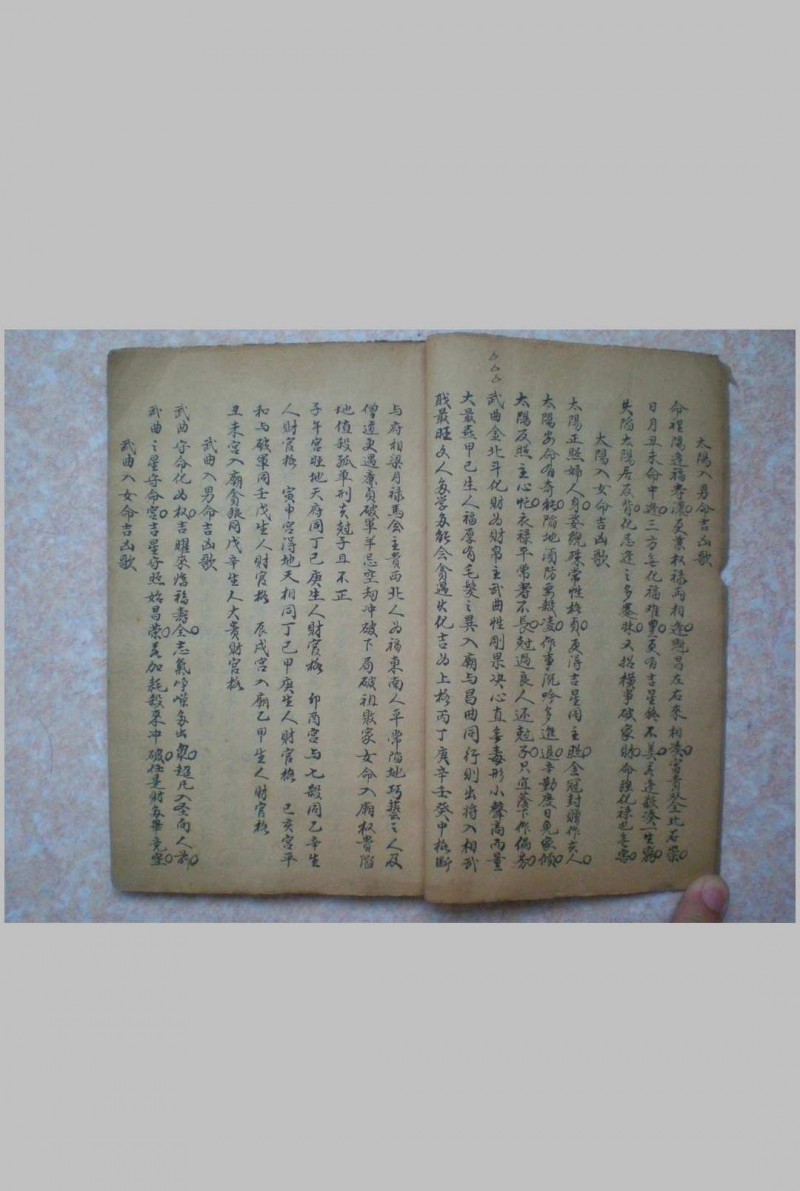 太陽入男命吉凶歌
命裡陽逢福壽濃更兼权禄兩相逢魁昌左右來相湊富貴双全比石崇
日月丑未命中逢三方無化福难豐更有吉星終不美若逢殺湊一生窮
失陷太陽居反背化忌逢之多蹇昧又招橫事破家財命強化禄也無害
太陽入女命吉凶歌
太陽正照婦人身姿貌殊常性格貞更得吉星同主照金冠封贈作夫人
太陽安命有奇能陷地須防惡殺凌作事沉吟多進退辛勤度日免家傾
太陽反照主心忙衣禄平常壽不長尅過良人还尅子只宜蔭下作偏房
武曲金北斗化財为財帛主武曲性剛果决心直無毒形小聲高而量
大最喜甲己生人福厚有毛髮之異入廟与昌曲同行則出將入相武
职最旺文人多学多能会貪遇火化吉为上格丙丁庚辛壬癸中格斷
与府相梁月禄馬会主貴西北人为福東南人平常陷地巧藝之人及
僧道更遇亷貞破軍羊忌空刼冲破下局破祖敗家女命入廟权貴陷
地值殺孤单刑夫尅子且不正
子午宮旺地天府同丁己庚生人財官格　卯酉宮与七殺同乙辛生
人財官格　寅申宮得地天相同丁己甲庚生人財官格　巳亥宮平
和与破軍同壬戊生人財官格　辰戌宮入廟乙甲生人財官格
丑未宮入廟貪狼同戊辛生人大貴財官格
武曲入男命吉凶歌
武曲守命化为权吉曜來臨福壽全志氣崢嶸多出衆超凡入聖向人前
武曲之星守命宮吉星守照始昌荣若加耗殺來冲破任是財多畢竟空
武曲入女命吉凶歌